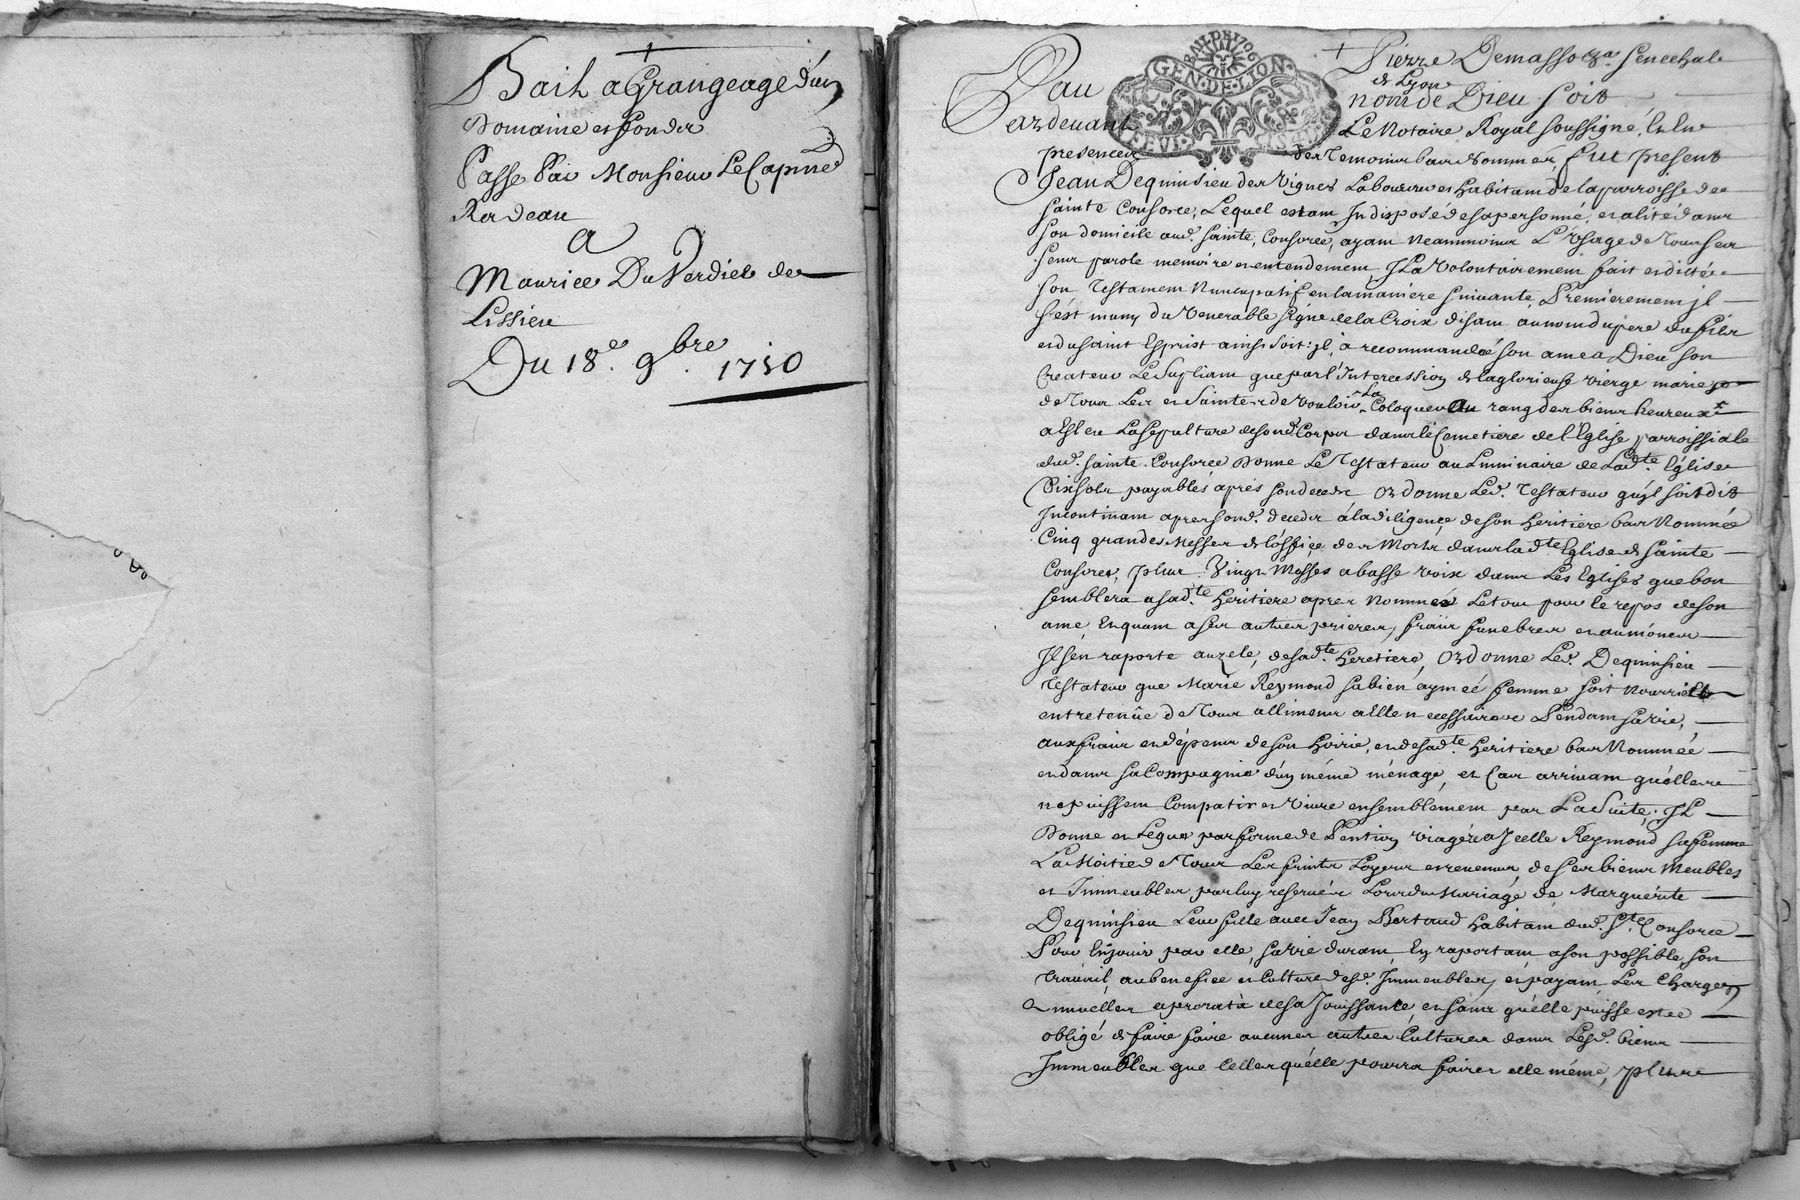 Bail a Grangeage d'un
Domaine et fonder
Passé Par Monsieur Le Capne
Rerdeau
A
Maurice DuVerdier de
Lissieu
Du 18e. 9bre. 1750
GEN. DE. LION.
Pierre Demasso Sa Senechal
de Lyon
Au nom de Dieu soit
Pardevant Le Notaire Royal soussigné, En En
presence der Temoinr bar nommér fut present
Jean Dequinsieu der Vigner Laboureur Habitant de la parroisse de
sainte Consorce, Lequel estam Indisposé de sa personne, et alité danr
son domicile aud. sainte Consorce, ayam neanmoinr L'Usage de Tour ser
senr parole memoire et entendement, Il a Volontairement fait et dicté
son Testament Nuncupatif en la maniere suivante, Premierement il
s'est muny du Venerable signe de la Croix disant au nom du pere du filr
et du saint Esprit ainsi soit-il, a recommandé son ame a Dieu son
Createur Le Supliam que par l'Intercession de la glorieuse vierge marie
de Tour Ler et Sainter de vouloir La Coloquer Au rang der bienr heureux
a Esleu La sepulture de sond. Corps danr le Cemetiere de l'Eglise parroissiale
dud. sainte Consorce Donne Le Testateur au Luminaire de Lad.te Eglise
Dix solr payables aprés son decedr Ordonne Led. Testateur qu'jl soit dit
Incontinam aprer sond. decedr á la diligence de son heritiere bar Nommée
Cinq grandes Messer de l'office der Mortr danr lad.te Eglise de sainte
Consorce, plur Vingt Messes a basse voix danr Les Eglises que bon
semblera a sad.te heritiere aprer Nommée Le tour pour le repos de son
ame, Enquant a ser autrer prierer, fraix funebrer et aumoner
Il s'en raporte au zele, de sad.te heretiere, Ordonne Led. Dequinsieu
Testateur que Marie Reymond sa bien aymeé femme soit Nourrie et
entretenûe de Tour allimenr a Elle necessairer Pendam sa vie,
aux fraix et dépenr de son hoirie, et de sad.te heritiere bar Nommeé
et danr sa Compagnie d'un méme ménage, et Car arrivam qu'eller
ne puissem Compatir et Vivre ensemblement par La Suite, Il
Donne et Legue par forme de Pention viagére a Jcelle Reymond sa femme
La Moitié de Tour Ler fruitr Loyerr et revenur, de ser bienr Meubles
et Immeubler par luy reservér Lorr du Mariage de Marguérite
Dequinsieu Leur fille avec Jean Bertaud habitam dud. S.te Consorce
Pour Enjouir par elle sa vie duram, En raportam a son possible son
travail, au benefice et Culture desd. Immeubler, et payam Ler Charger
annueller a prorata de sa Jouissance, et sanr qu'elle puisse estre
obligé de faire faire aucuner autrer Culturer danr Lesd. bienr
Immeubler que Celler qu'elle pourra fairer elle même, plure